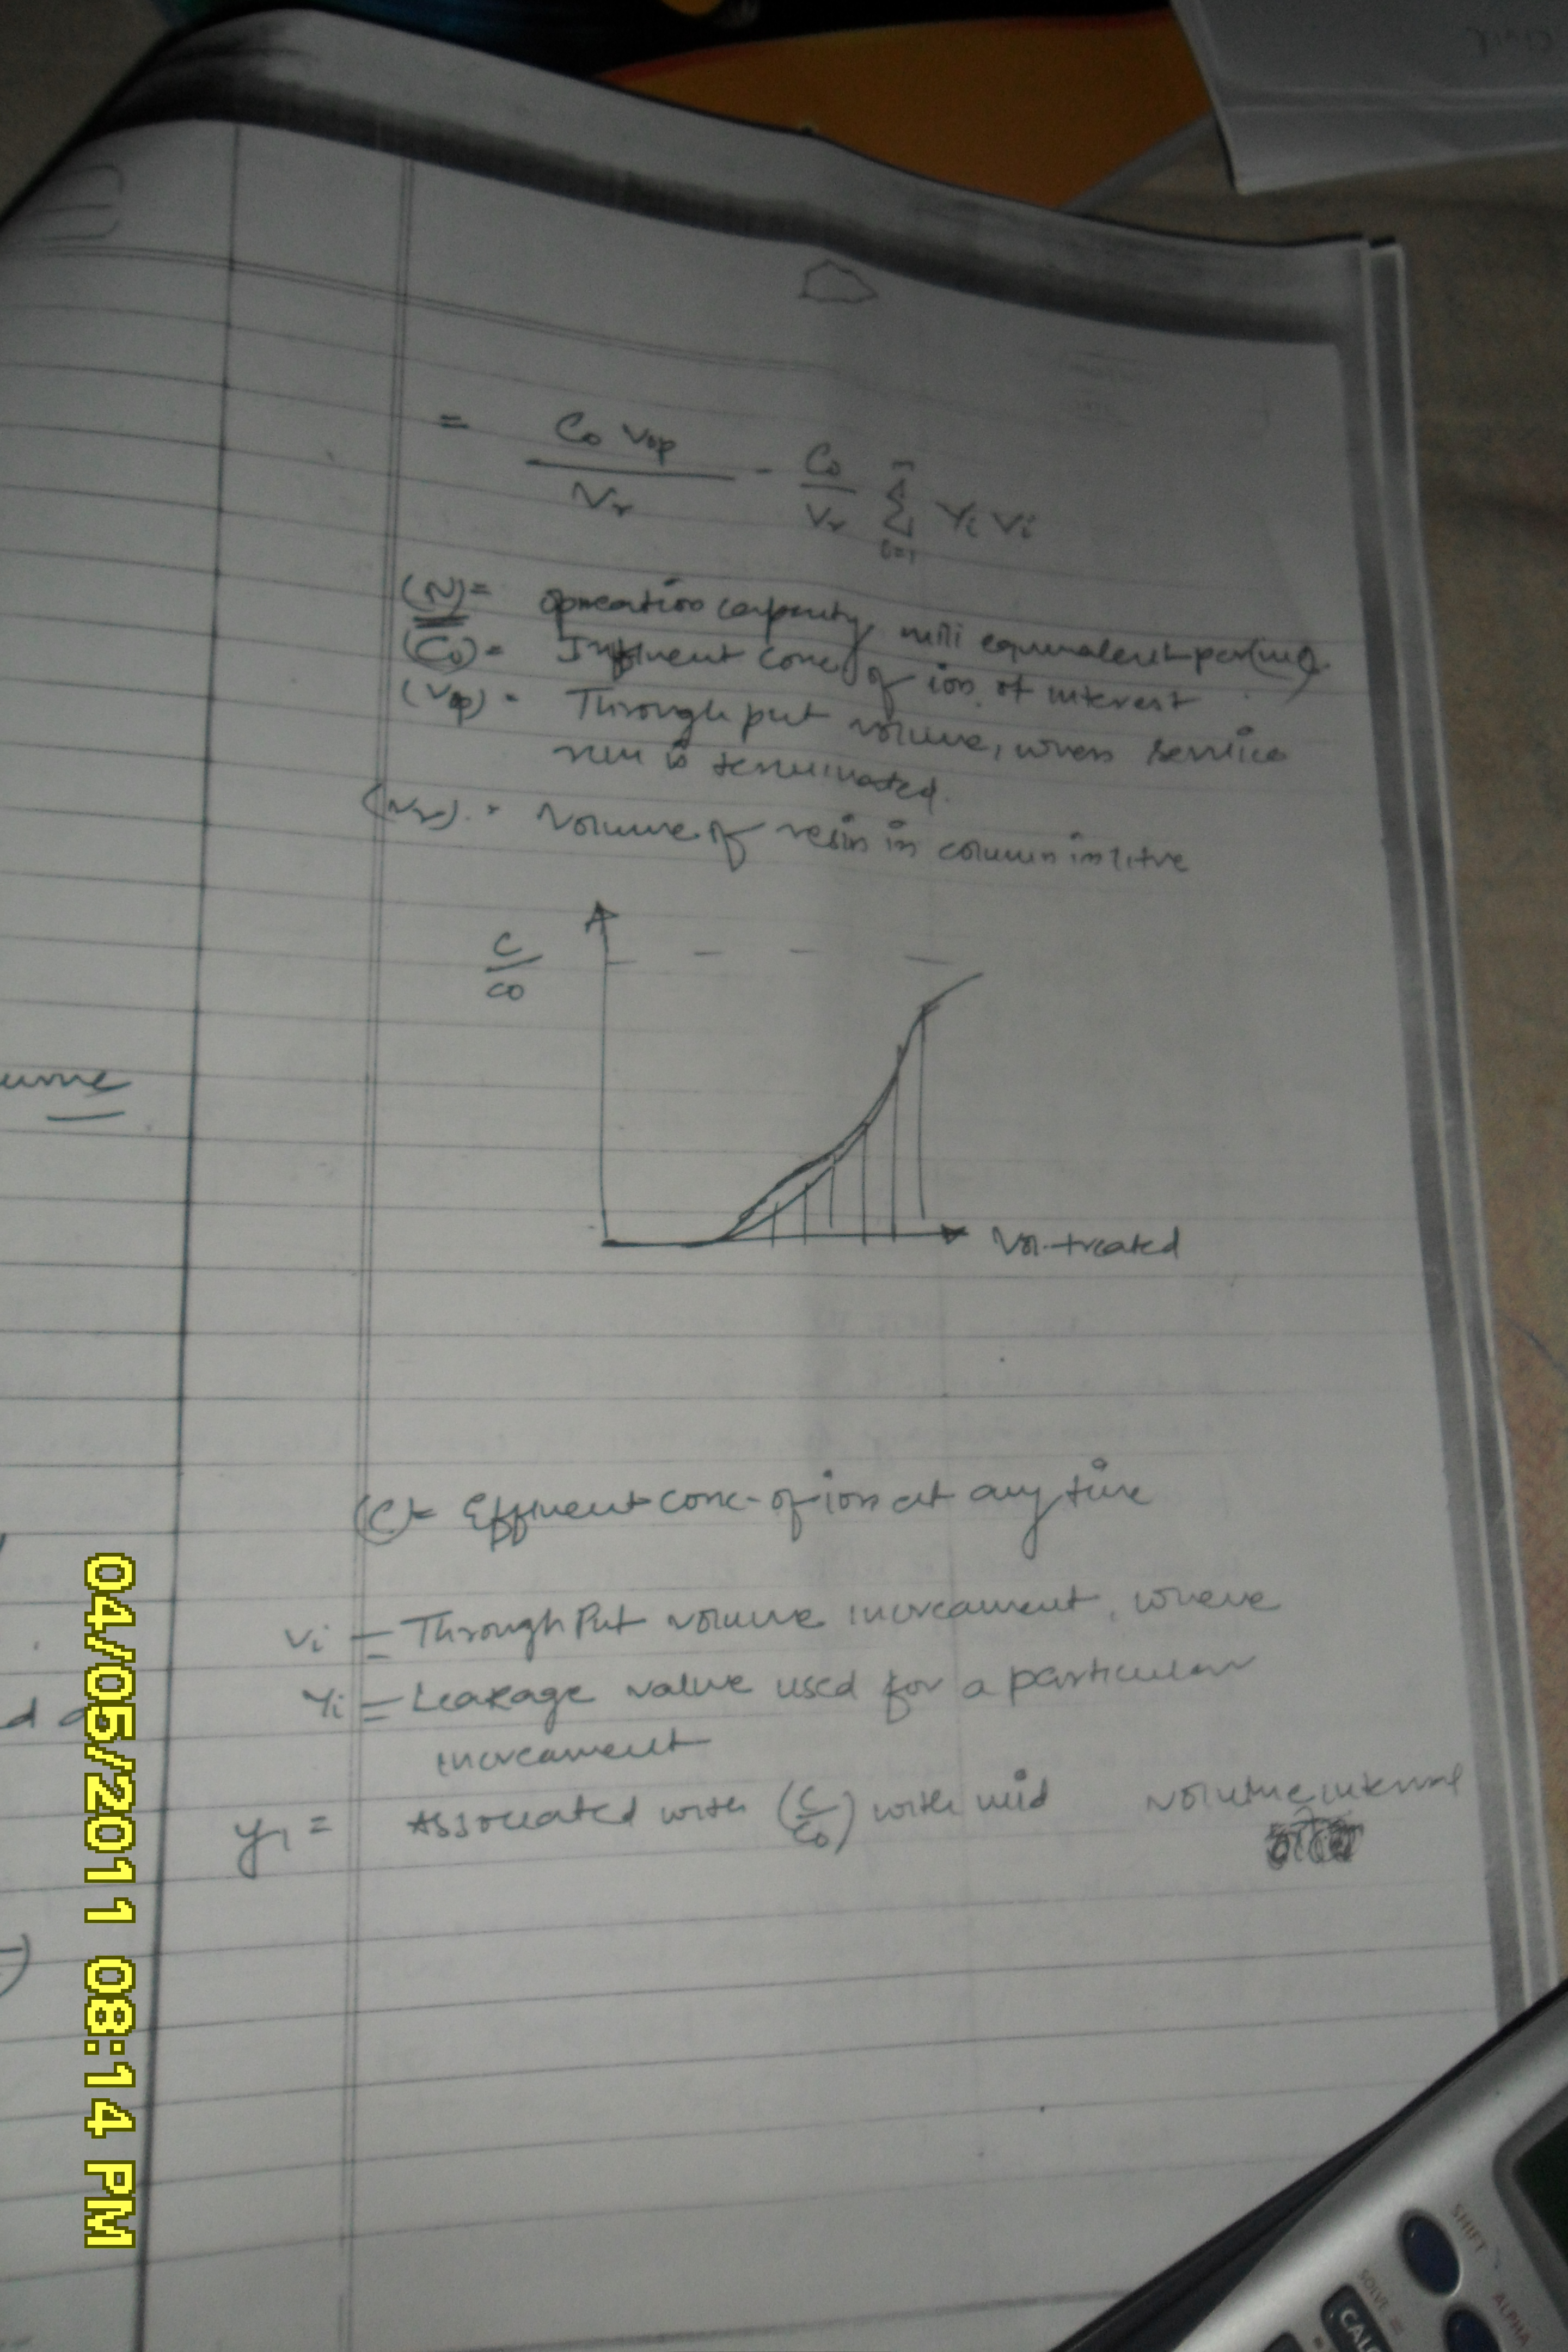 = C₀ Vop / Vr - C₀ / Vr Σ i=1 n Yi Vi
(N) = operation capacity, milli equivalent per (ml).
(C₀) = Influent conc. of ion of interest
(Vop) = Through put volume, when service
run is terminated.
(Vr). = Volume of resin in column in litre
C / C₀
Vol. treated
ume
(C) = Effluent conc- of ion at any time
Vi = Through Put volume increament, where
Yi = Leakage value used for a particular
increament
y₁ = Associated with (C/C₀) with mid volume interval
d
04/05/2011 08:14 PM
SHIFT
SOLVE =
ALPHA
CAL